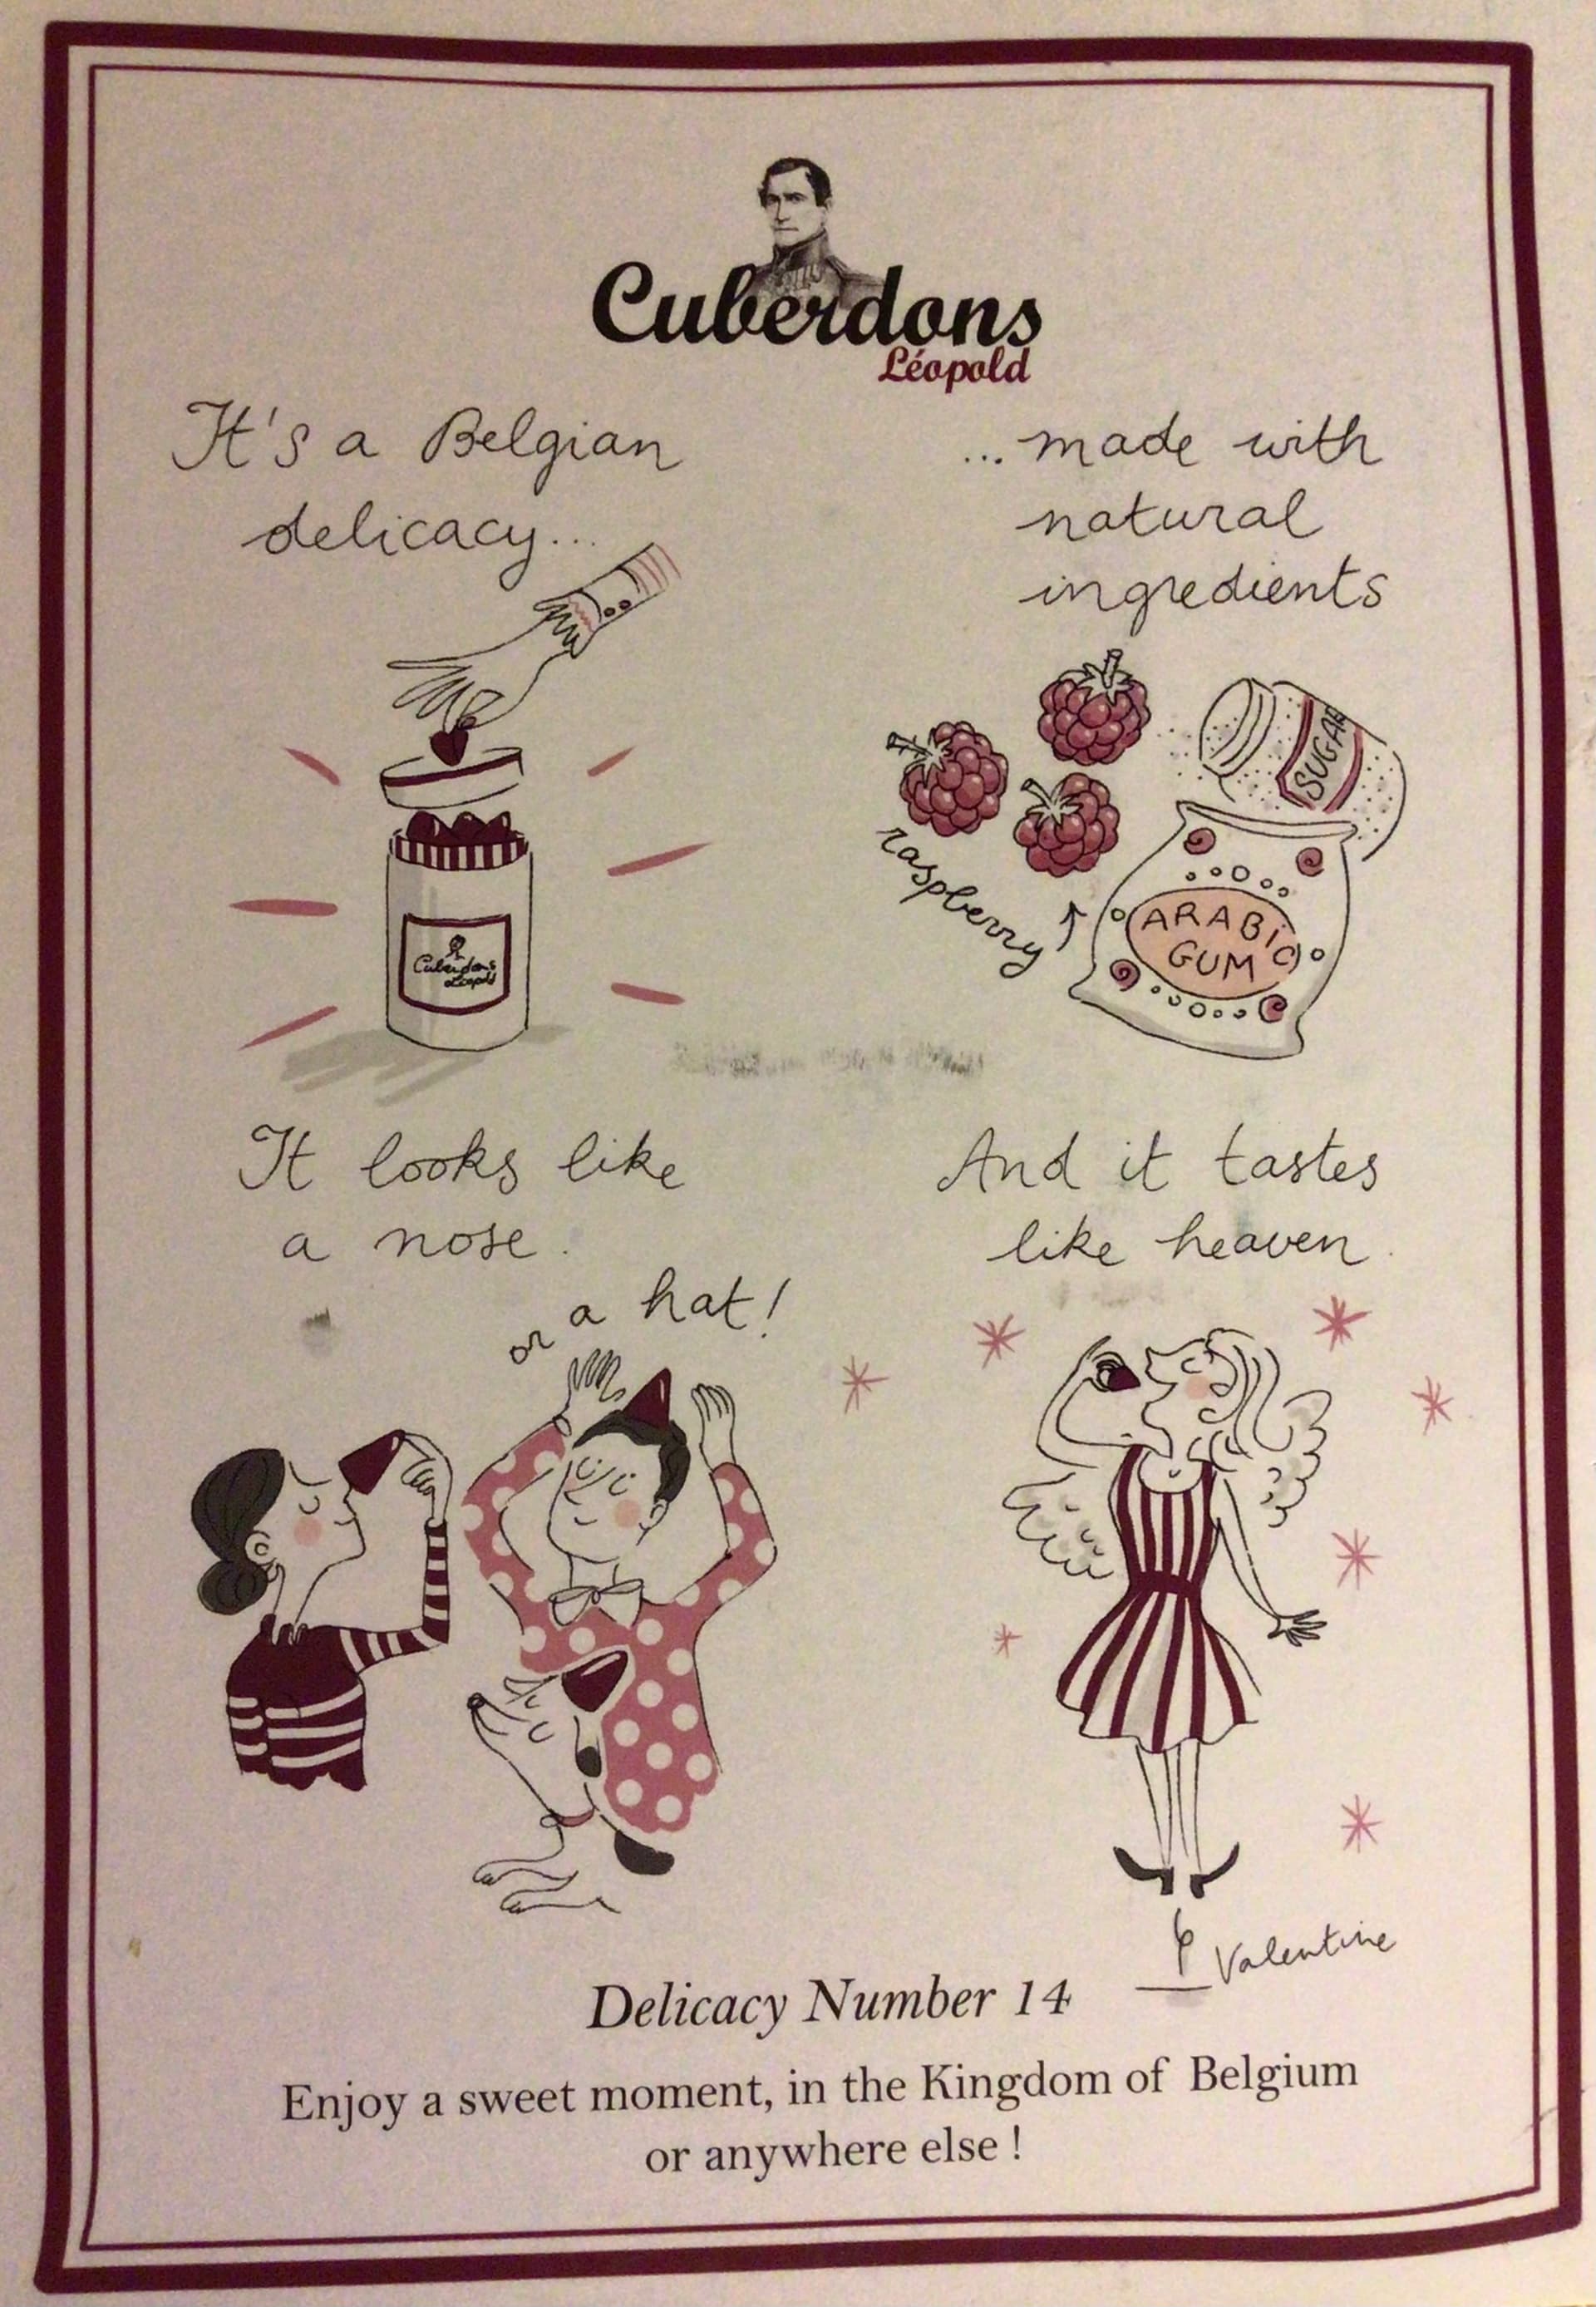 Cuberdons
Léopold
It's a Belgian
delicacy...
...made with
natural
ingredients
SUGAR
raspberry
ARABIC
GUM
Cuberdons
Léopold
It looks like
a nose.
or a hat!
And it tastes
like heaven.
Valentine
Delicacy Number 14
Enjoy a sweet moment, in the Kingdom of Belgium
or anywhere else !